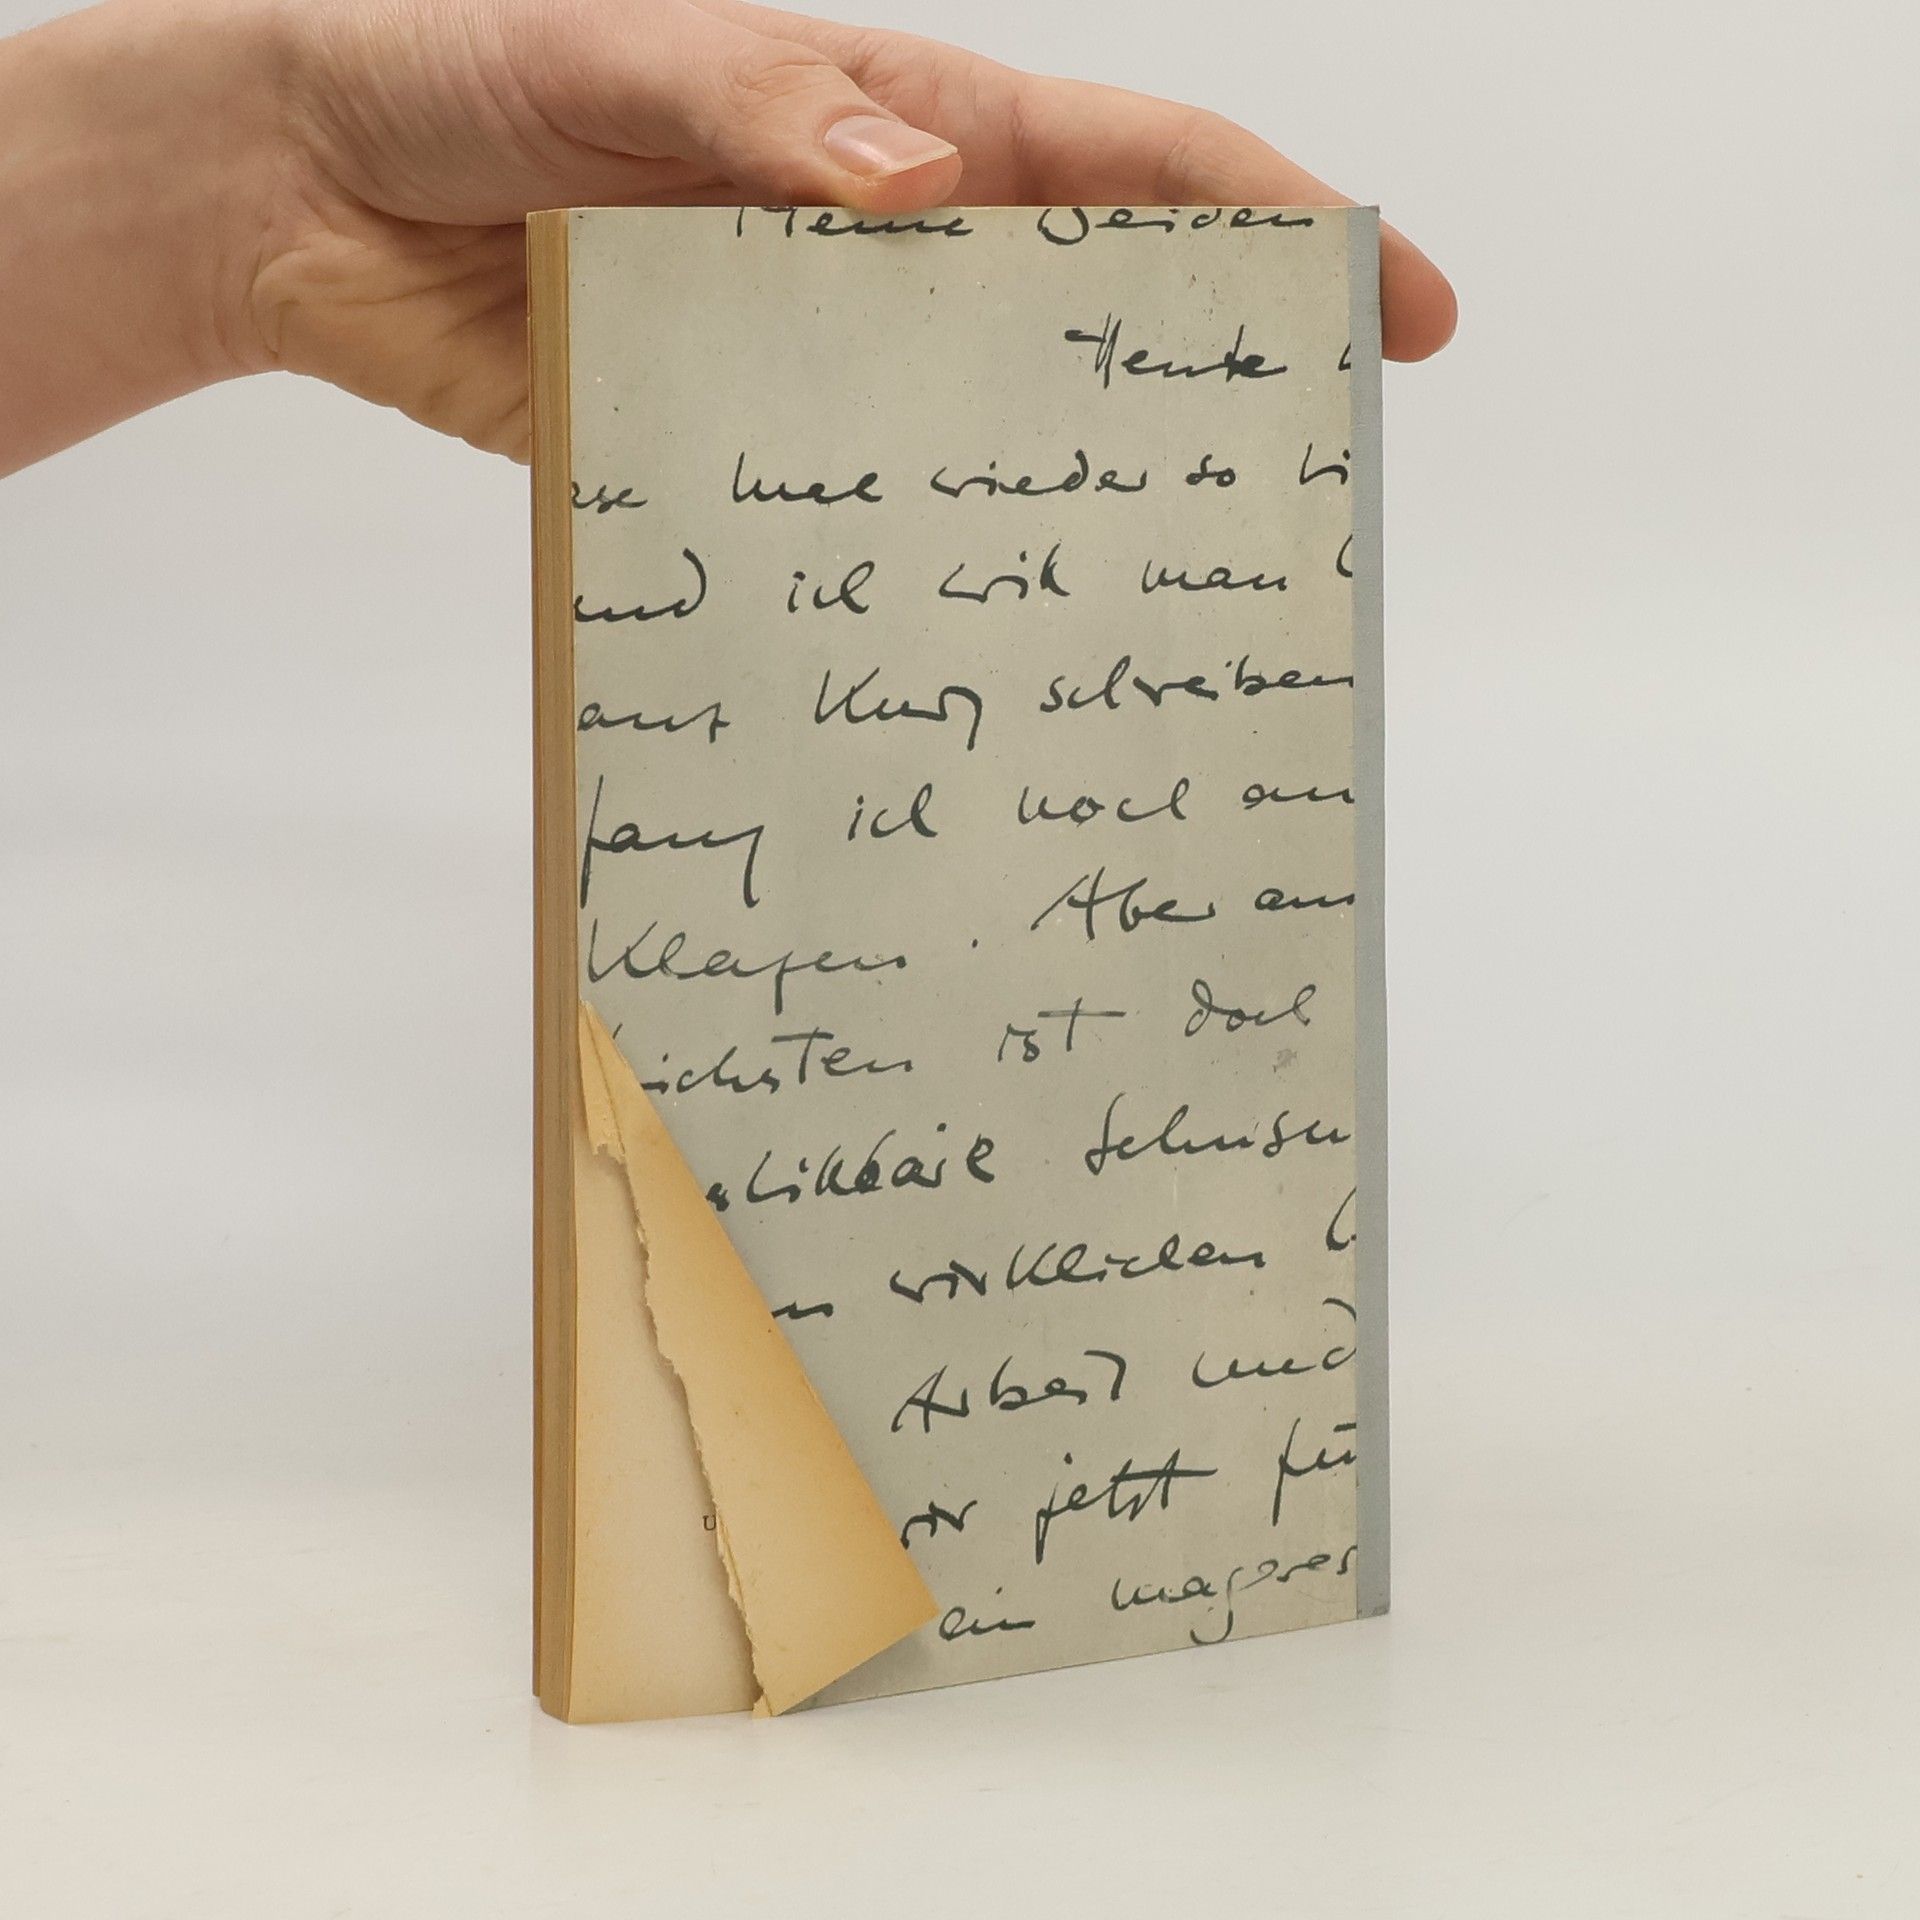 Meine Beiden
Heute
mal wieder so
und ich will man
auf Kurz schreiben
fang ich noch an
Klagen. Aber am
ichsten ist doch
wirklichen
Arbeit und
wir jetzt für
ein mageres
U